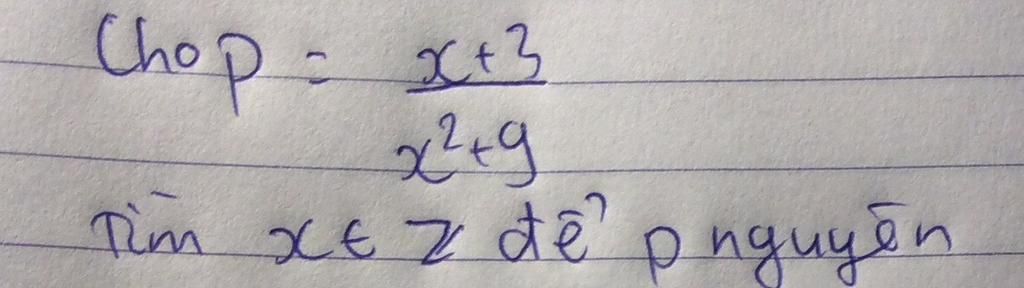 Cho p = x+3
x²+9
Tìm x ∈ Z để p nguyên